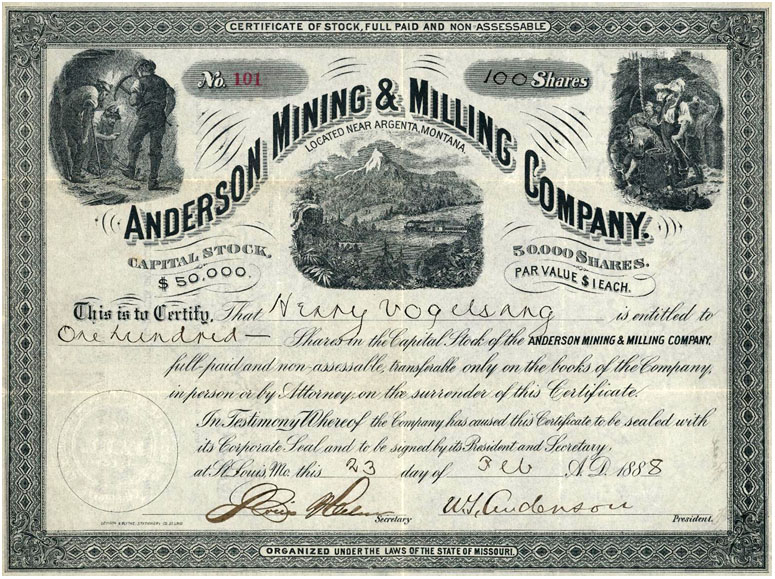 CERTIFICATE OF STOCK, FULL PAID AND NON ASSESSABLE
No. 101
100 Shares
ANDERSON MINING & MILLING COMPANY.
LOCATED NEAR ARGENTA, MONTANA.
CAPITAL STOCK,
$50,000.
50,000 SHARES.
PAR VALUE $1 EACH.
This is to Certify, That Henry Vogelsang is entitled to
One hundred — Shares in the Capital Stock of the ANDERSON MINING & MILLING COMPANY,
full-paid and non-assessable, transferable only on the books of the Company,
in person or by Attorney, on the surrender of this Certificate.
In Testimony Whereof the Company has caused this Certificate to be sealed with
its Corporate Seal and to be signed by its President and Secretary,
at St. Louis, Mo. this 23 day of Feb A.D. 1888
Louis Secretary
W. Anderson President.
ORGANIZED UNDER THE LAWS OF THE STATE OF MISSOURI.